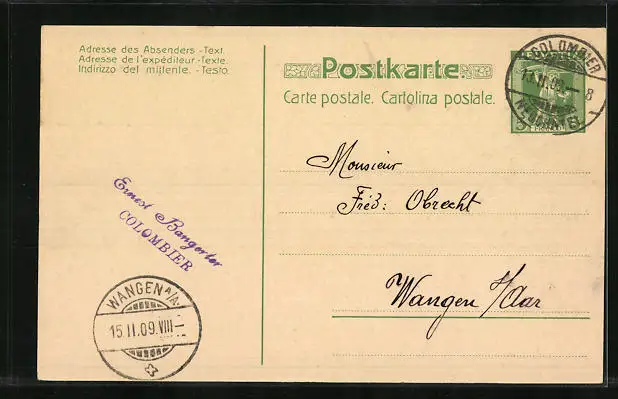 Adresse des Absenders.-Text.
Adresse de l'expéditeur.-Texte.
Indirizzo del mittente.-Testo.
Postkarte
Carte postale. Cartolina postale.
COLOMBIER
8
Monsieur
Fréd: Obrecht
Wangen s/Aar
Ernest Bangerter
COLOMBIER
WANGEN A/A.
15.II.09.VIII